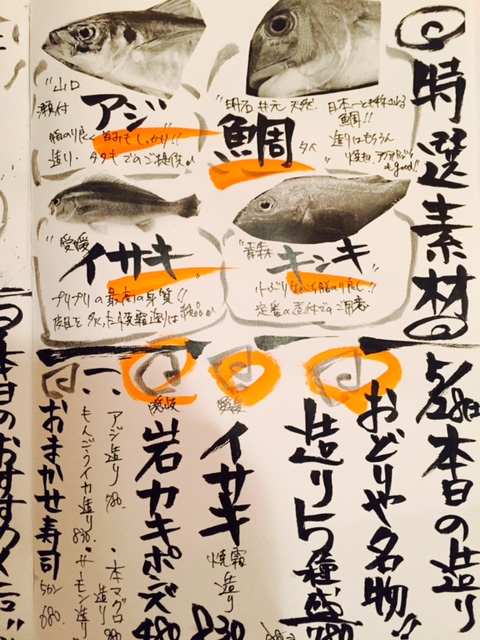 特選素材
明石 井元 天然
鯛
日本一と称される
鯛!!
造りはもちろん
good!!
山口
瀬付
アジ
脂のり良く旨みもしっかり!!
造り・タタキでのご提供
青森
キンキ
小ぶりながら脂のり良し!
定番の煮付でのご用意
愛媛
イサキ
プリプリの最高の身質!!
皮目を炙った焼霜造りは絶品
5/28日 本日の造り
おどりや名物"
造り5種盛
愛媛
イサキ
焼霜造り
830
讃岐
岩カキポン酢
480
・本マグロ造り
・アジ造り 780.
・サーモン造り
・もんごうイカ造り 830.
おまかせ寿司
680.
本日のおすすめ